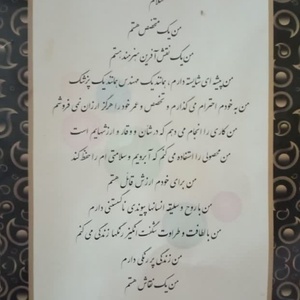 سلام
من یک متخصص هستم
من یک نقش آفرین هنرمند هستم
من پیشه ای شایسته دارم ، همانند یک مهندس همانند یک پزشک
من به خودم احترام می گذارم و تخصص و عمر خود را هرگز ارزان نمی فروشم
من کاری را انجام می دهم که در شان و وقار و ارزشهایم است
من محصولی را استفاده می کنم که آبرویم و سلامتی ام را حفظ کند
من برای خودم ارزش قائل هستم
من با روح و سلیقه انسانها پیوندی ناگسستنی دارم
من با لطافت و طراوت شگفت انگیز رنگها زندگی می کنم
من زندگی پر رنگی دارم
من یک نقاش هستم